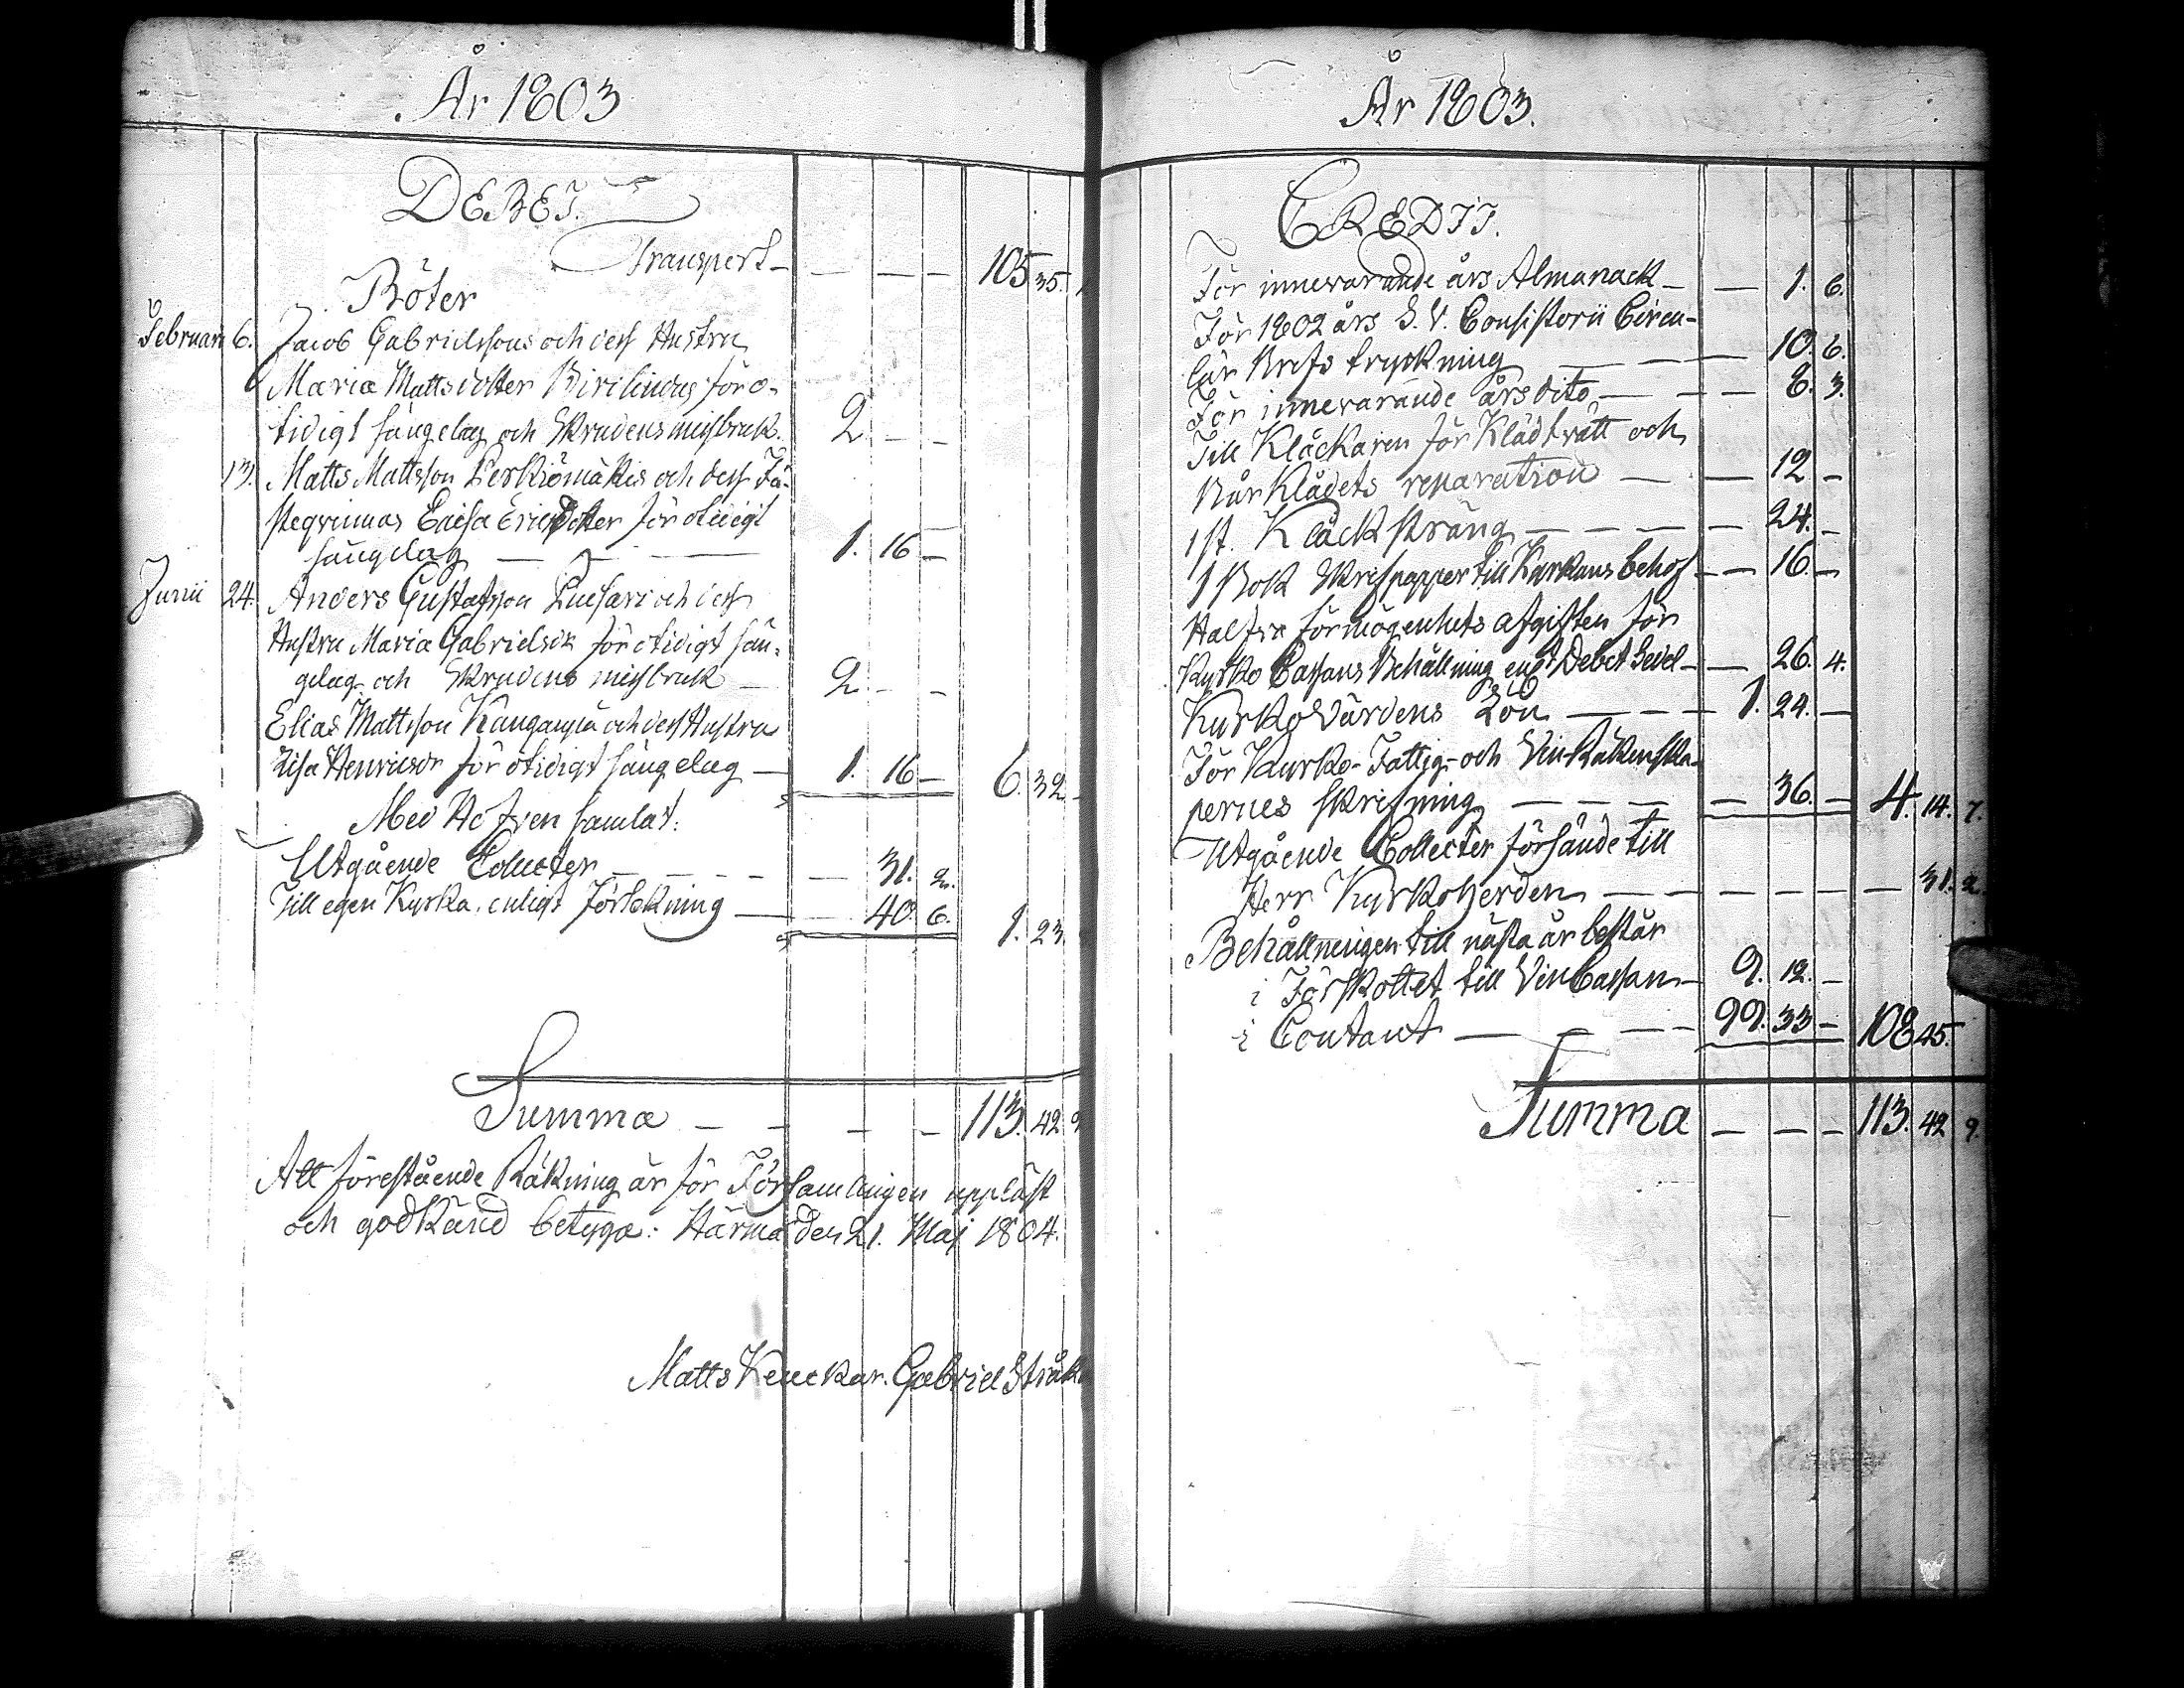 År 1803
DEBET.
Transport — — — — 105 35.
Böter
Februarii 6. Jacob Gabrielssons och dess Hustru
Maria Mattsdotter Birilindus för o-
tidigt sängelag och Skrudens missbruk. 2 — —
13. Matts Mattsson Perkiömäkis och dess Fä-
steqvinnas Caisa Ericsdotter för otidigt
sängelag — — — 1. 16 —
Junii 24. Anders Gustafsson Luesari och dess
Hustru Maria Gabrielsdr för otidigt sän-
gelag och Skrudens missbruk — 2 — —
Elias Mattsson Kangas och dess Hustru
Lisa Henricsdr för otidigt sängelag — 1. 16 — 6. 32. —
Med Håfven samlat:
Utgående Collecter — — — — — 31. 2.
Till egen Kyrka, enligt Förtekning — — 40. 6. 1. 23.
Summa — — — — 113. 42 9
Att förestående Räkning är för Församlingen uppläst
och godkänd betyga: Härmä den 21. Maj 1804.
Matts Keuckar. Gabriel Stråka
År 1803.
CREDIT.
För innevarande års Almanack — — 1. 6.
För 1802 års S. V. Consistorii Circu-
lär Brefs tryckning — — — 10. 6.
För innevarande års dito — — — 8. 3.
Till Klåckaren för Klädtvätt och
Bårklädets reparation — — 12 —
1 st. Klåcksträng — — — — 24. —
1 Bok Skrifpapper till Kyrkans behof — — 16. —
Halfva förmögenhets afgiften för
Kyrko Cassans Behållning engt Debet Sedel — — 26. 4.
Kyrkovärdens Lön — — — 1. 24. —
För Kyrko- Fattig- och Vin-Räkenska-
pernes skrifning — — — — 36. — 4. 14. 7.
Utgående Collecter försände till
Herr Kyrkoherden — — — — — — 31. 2.
Behållningen till nästa år består
i Förskottet till Vin Cassan — 9. 12. —
i Contant — — — — 99. 33 — 108 45.
Summa — — — 113. 42 9.